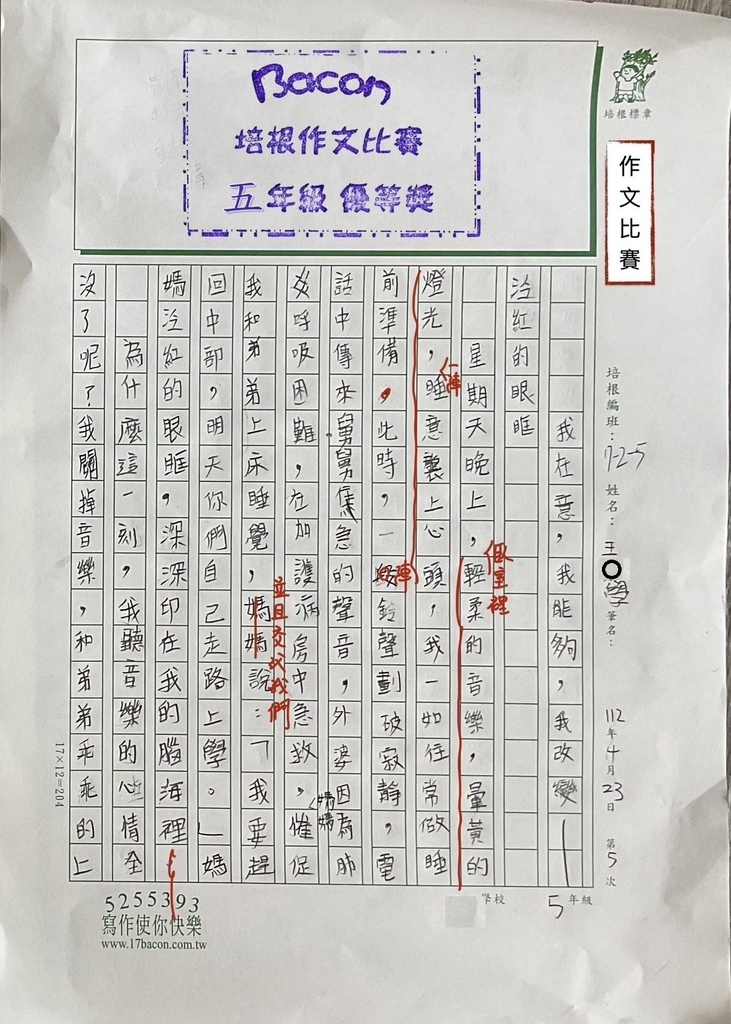 Bacon
培根作文比賽
五年級 優等獎
培根標章
作文比賽
培根編班：72-5 姓名：王 學 筆名：
112年4月23日 第5次
學校 5年級
我在意，我能夠，我改變—
泛紅的眼眶
星期天晚上，輕柔的音樂，暈黃的
臥室裡
燈光，睡意襲上心頭，我一如往常做睡
一陣
前準備，此時，一段鈴聲劃破寂靜，電
陣
話中傳來舅舅焦急的聲音，外婆因為肺
炎呼吸困難，在加護病房中急救，催促
媽媽
我和弟弟上床睡覺，媽媽說：「我要趕
並且交代我們
回中部，明天你們自己走路上學。」媽
媽泛紅的眼眶，深深印在我的腦海裡
為什麼這一刻，我聽音樂的心情全
沒了呢？我關掉音樂，和弟弟乖乖的上
17×12=204
5255393
寫作使你快樂
www.17bacon.com.tw